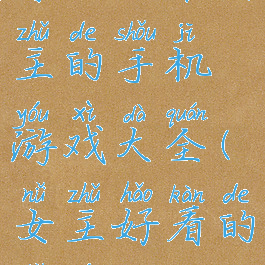 zhǔ de shǒu jī
主的手机
yóu xì dà quán
游戏大全(
nǚ zhǔ hǎo kàn de
女主好看的